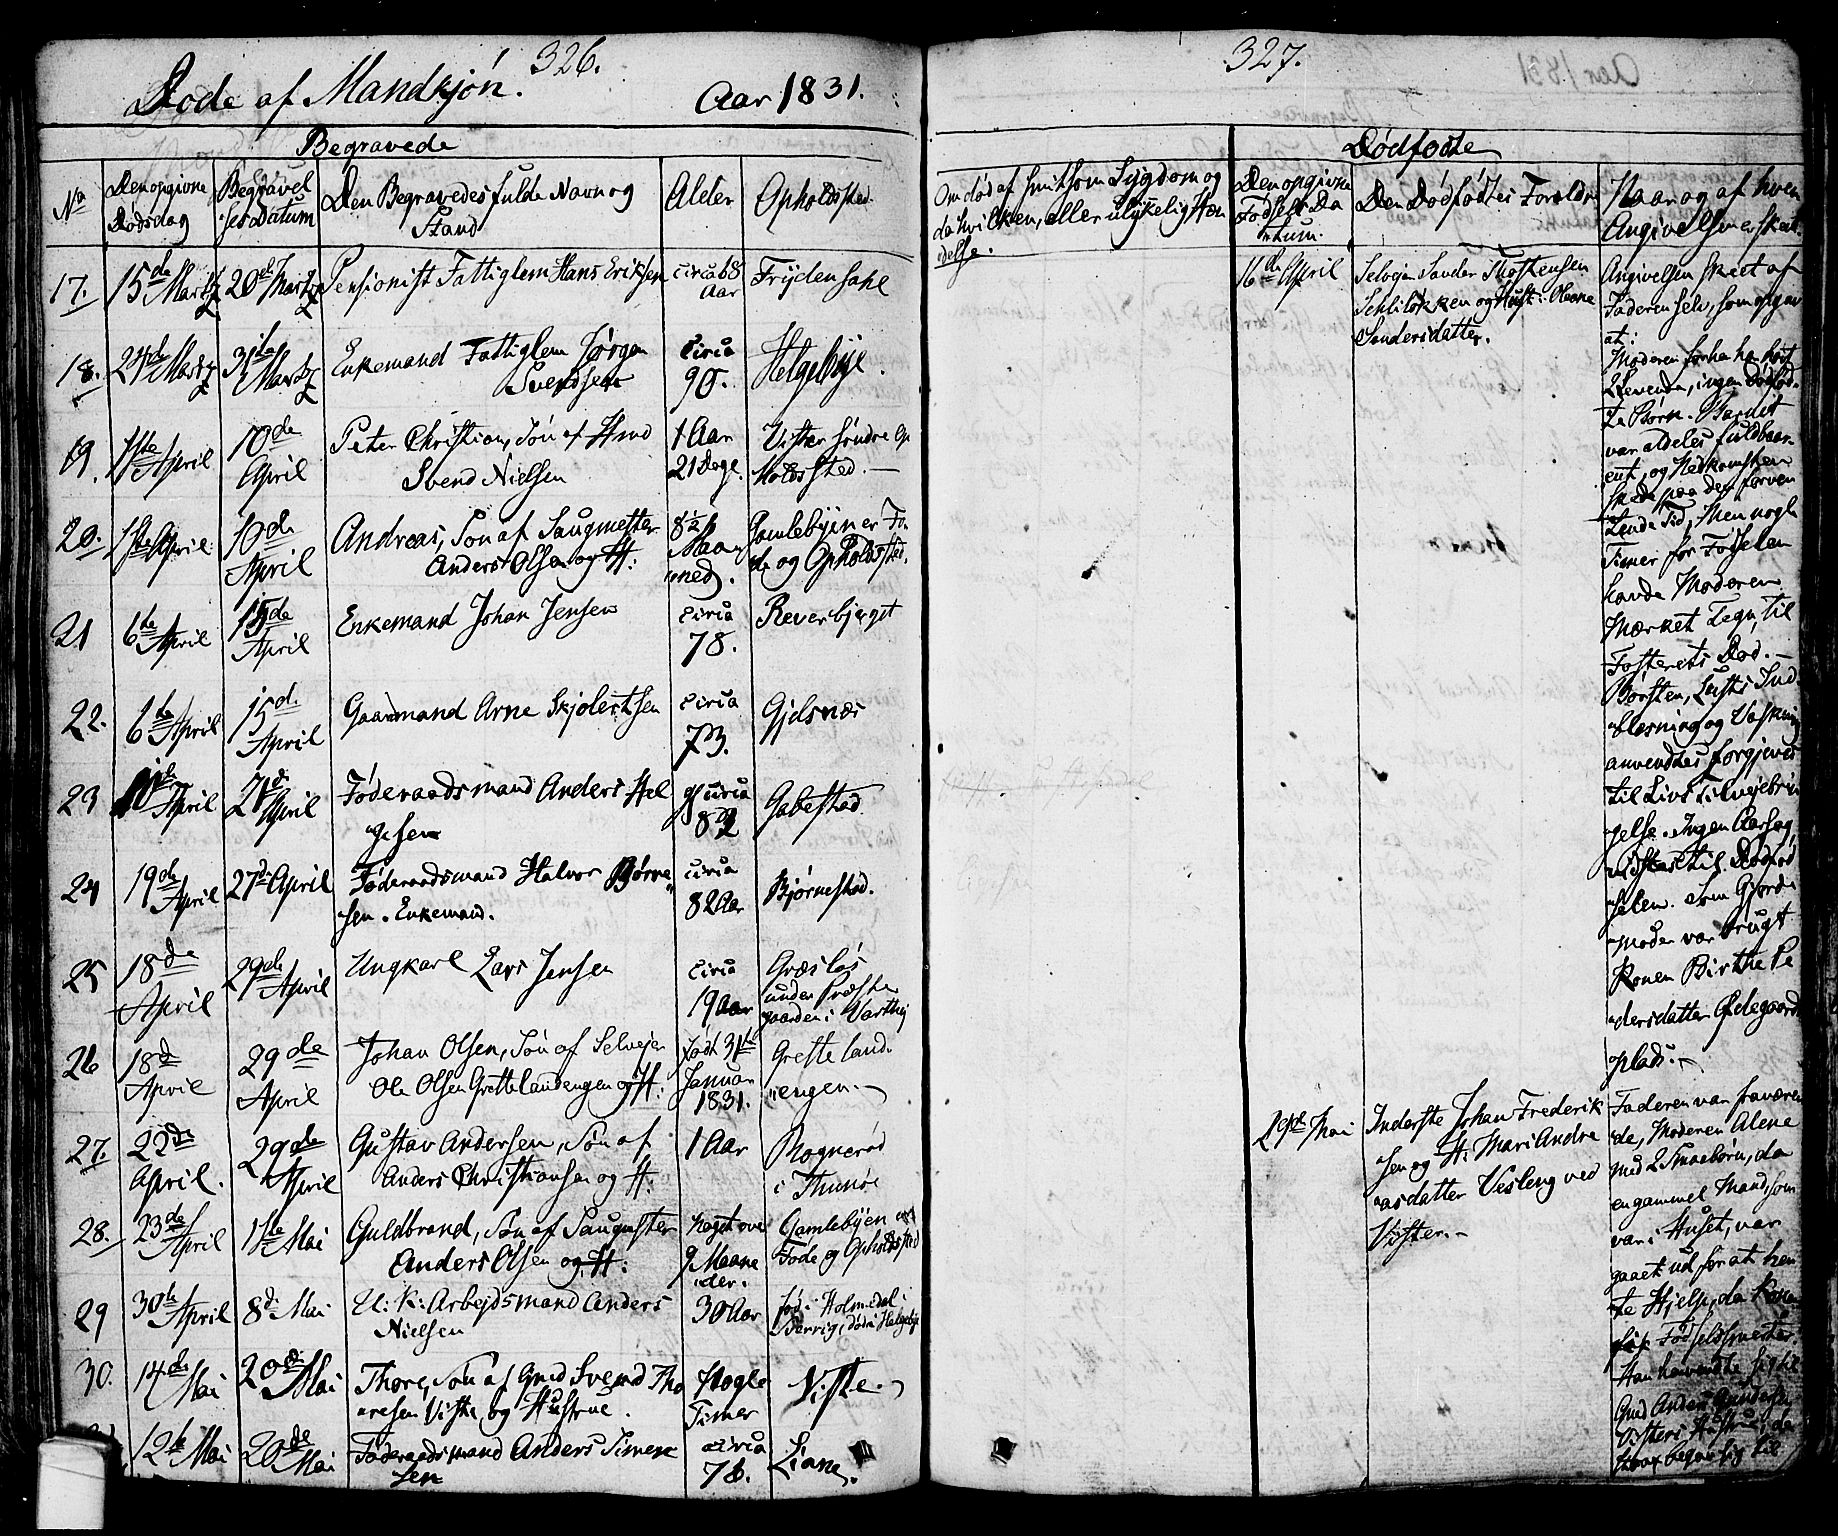 326.
Døde af Mandkjøn. Aar 1831.
Begravede
No
Den opgivne
Dødsdag
Begravel
sesdatum
Den Begravedes fulde Navn og
Stand
Alder
Opholdsted
17. 15de Martz 20de Martz Pensionist Fattiglem Hans Eriksen circa 68 Aar Frydensahl
18. 24de Martz 31te Martz Enkemand Fattiglem Jørgen
Svendsen circa 90. Helgebye.
19. 1ste April 10de April Peter Christian, Søn af Hmd
Svend Nielsen 1 Aar 21 Dage. Vister søndre Op
holdssted.
20. 1ste April 10de April Andreas, Søn af Saugmester
Anders Olsen og H: 8½ Maaneder. Gamlebyen er Fø
de og Opholdsted.
21 6te April 15de April Enkemand Johan Jensen circa 78. Reverbjerget
22. 6te April 15de April Gaardmand Arne Skjolertsen circa 73. Gjelsnæs
23 April 21de April Føderaadsmand Anders Hel
gesen circa 82 Gabestad.
24 19de April 27de April Føderaadsmand Halvor Børre
sen. Enkemand. circa 82 Aar Bjørnestad.
25 18de April 29de April Ungkarl Lars Jensen circa 19 Aar Græsløs
under Præste
gaarden i Varthig
26 18de April 29de April Johan Olsen, Søn af Selveier
Ole Olsen Grettelandengen og H: født 31te Januar 1831. Gretteland
engen.
27. 22de April. 29de April Gustav Andersen, Søn af
Anders Christiansen og H: 1 Aar Rognerød
i Thunøe
28. 23de April 1ste Mai Guldbrand, Søn af Saugmester
Anders Olsen og H: noget over 9 Maaneder. Gamlebyen
Føde og Opholdsted
29 30te April 8de Mai U: K: Arbejdsmand Anders
Nielsen 30 Aar fød i Holmedal i
Sverrig, død i Helgebye
30. 14de Mai 20de Mai Thore, Søn af Gmd Svend Tho
resen Viste og Hustrue. Nogle Timer Viste.
12te Mai 20de Mai Føderaadsmand Anders Simen
sen circa 78. Liane.
327.
Om død af smitsom Sygdom og
da hvilken, eller ulykkelig Hæn
delse.
Dødfødte
Den opgivne
Fødsels Da
tum.
Den Dødfødtes Forældre
Naar og af hvem
Angivelsen er skeet.
16de April
Selvejer Sander Thostensen
Schliløkken og Hust: Oleane
Sandersdatter.
Angivelsen skeet af
Faderen selv, som opgav
at:
Moderen forhen har havt
2 levende, ingen dødfød
te Børn. Barnet
var aldeles fuldbaar
ent, og Nedkomsten
skede paa den forven
tende Tid, Men nogle
Timer før Fødselen
havde Moderen
Mærket Tegn til
Fosterets Død.
Børsten, Lufts Ind
blesning og Vaskning
anvendtes forgjeves
til Livs Tilvejebrin
gelse. Ingen Aarsag
vidstes til Dødfød
selen. Som Gjord
moder var brugt
Konen Birthe Pe
dersdatter Ødegaards
plads.
29de Mai
Inderste Johan Frederik
sen og H: Mari Andre
asdatter Vesleng ved
Vister.
Faderen var fraværen
de, Moderen Alene
med 2 Smaabørn, da
en gammel Mand, som
var i Huset, var
gaaet ud for at hen
te Hjelp, da Konen
fik Fødselssmerter.
Han henvendte sig til
Gmd Anders Gundersen
Visters Hustrue, der
strax begav sig til